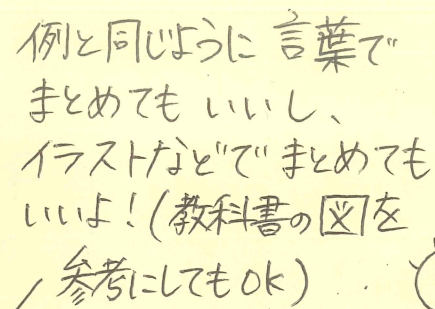 例と同じように言葉で
まとめてもいいし、
イラストなどでまとめても
いいよ!(教科書の図を
参考にしてもOK)